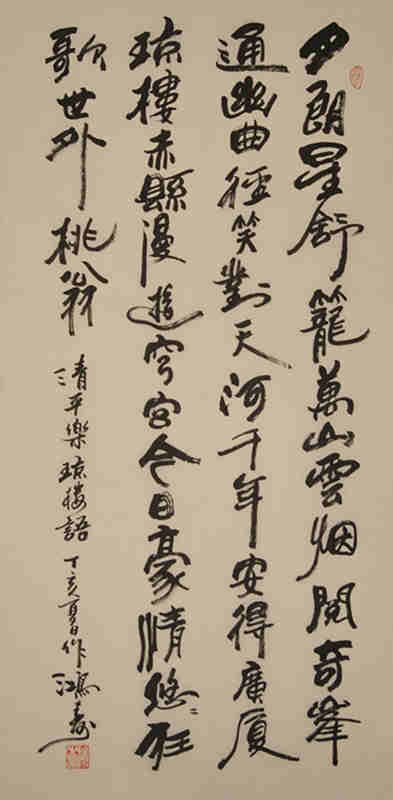 夕朗星舒籠萬山雲烟開奇峯
通幽曲徑笑對天河千年安得廣厦
琼樓赤縣漫遊穹宫今日豪情悠〻狂
歌世外桃翁
清平樂琼樓語 丁亥夏日作